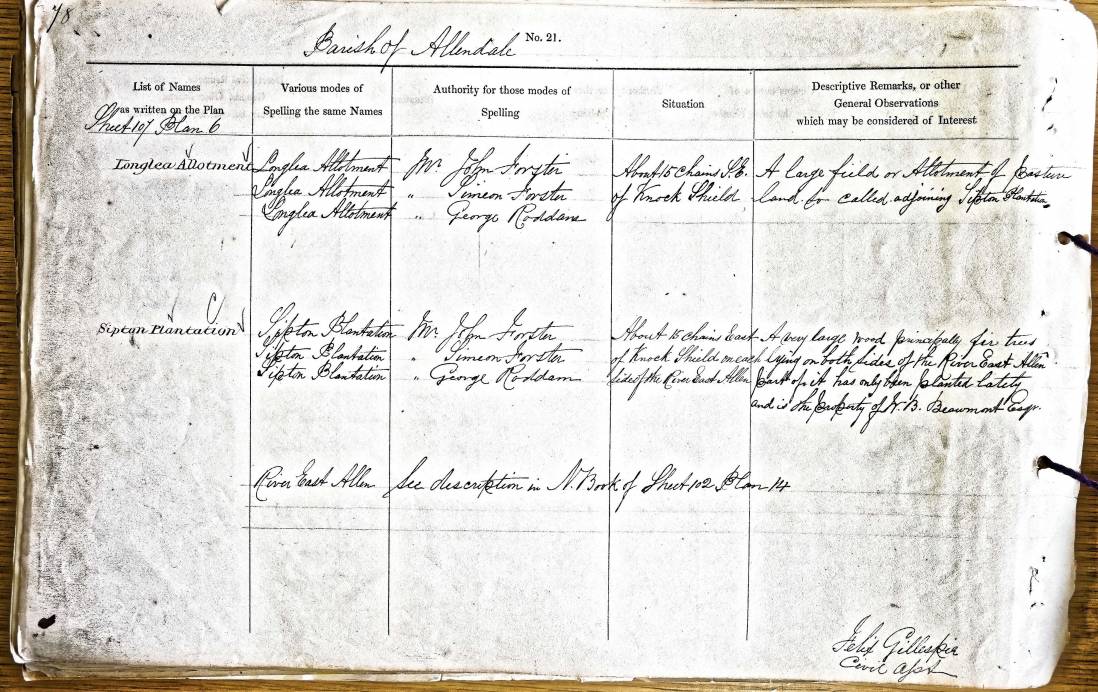 78
Parish of Allendale No. 21.
List of Names
as written on the Plan
Various modes of
Spelling the same Names
Authority for those modes of
Spelling
Situation
Descriptive Remarks, or other
General Observations
which may be considered of Interest
Sheet 107 Plan 6
Longlea Allotment Longlea Allotment Mr. John Forster About 15 chains S.E. A large field or Allotment of
Longlea Allotment " Simeon Forster of Knock Shield land so called adjoining Sipton Plantation
Longlea Allotment " George Roddam
Sipton Plantation Sipton Plantation Mr. John Forster About 15 chains East A very large wood principaly fir trees
Sipton Plantation " Simeon Forster of Knock Shield on each lying on both sides of the River East Allen
Sipton Plantation " George Roddam side of the River East Allen part of it has only been planted lately
and is the property of W. B. Beaumont Esqr.
River East Allen See description in N. Book of Sheet 102 Plan 14
Felix Gillespie
Civil Asst